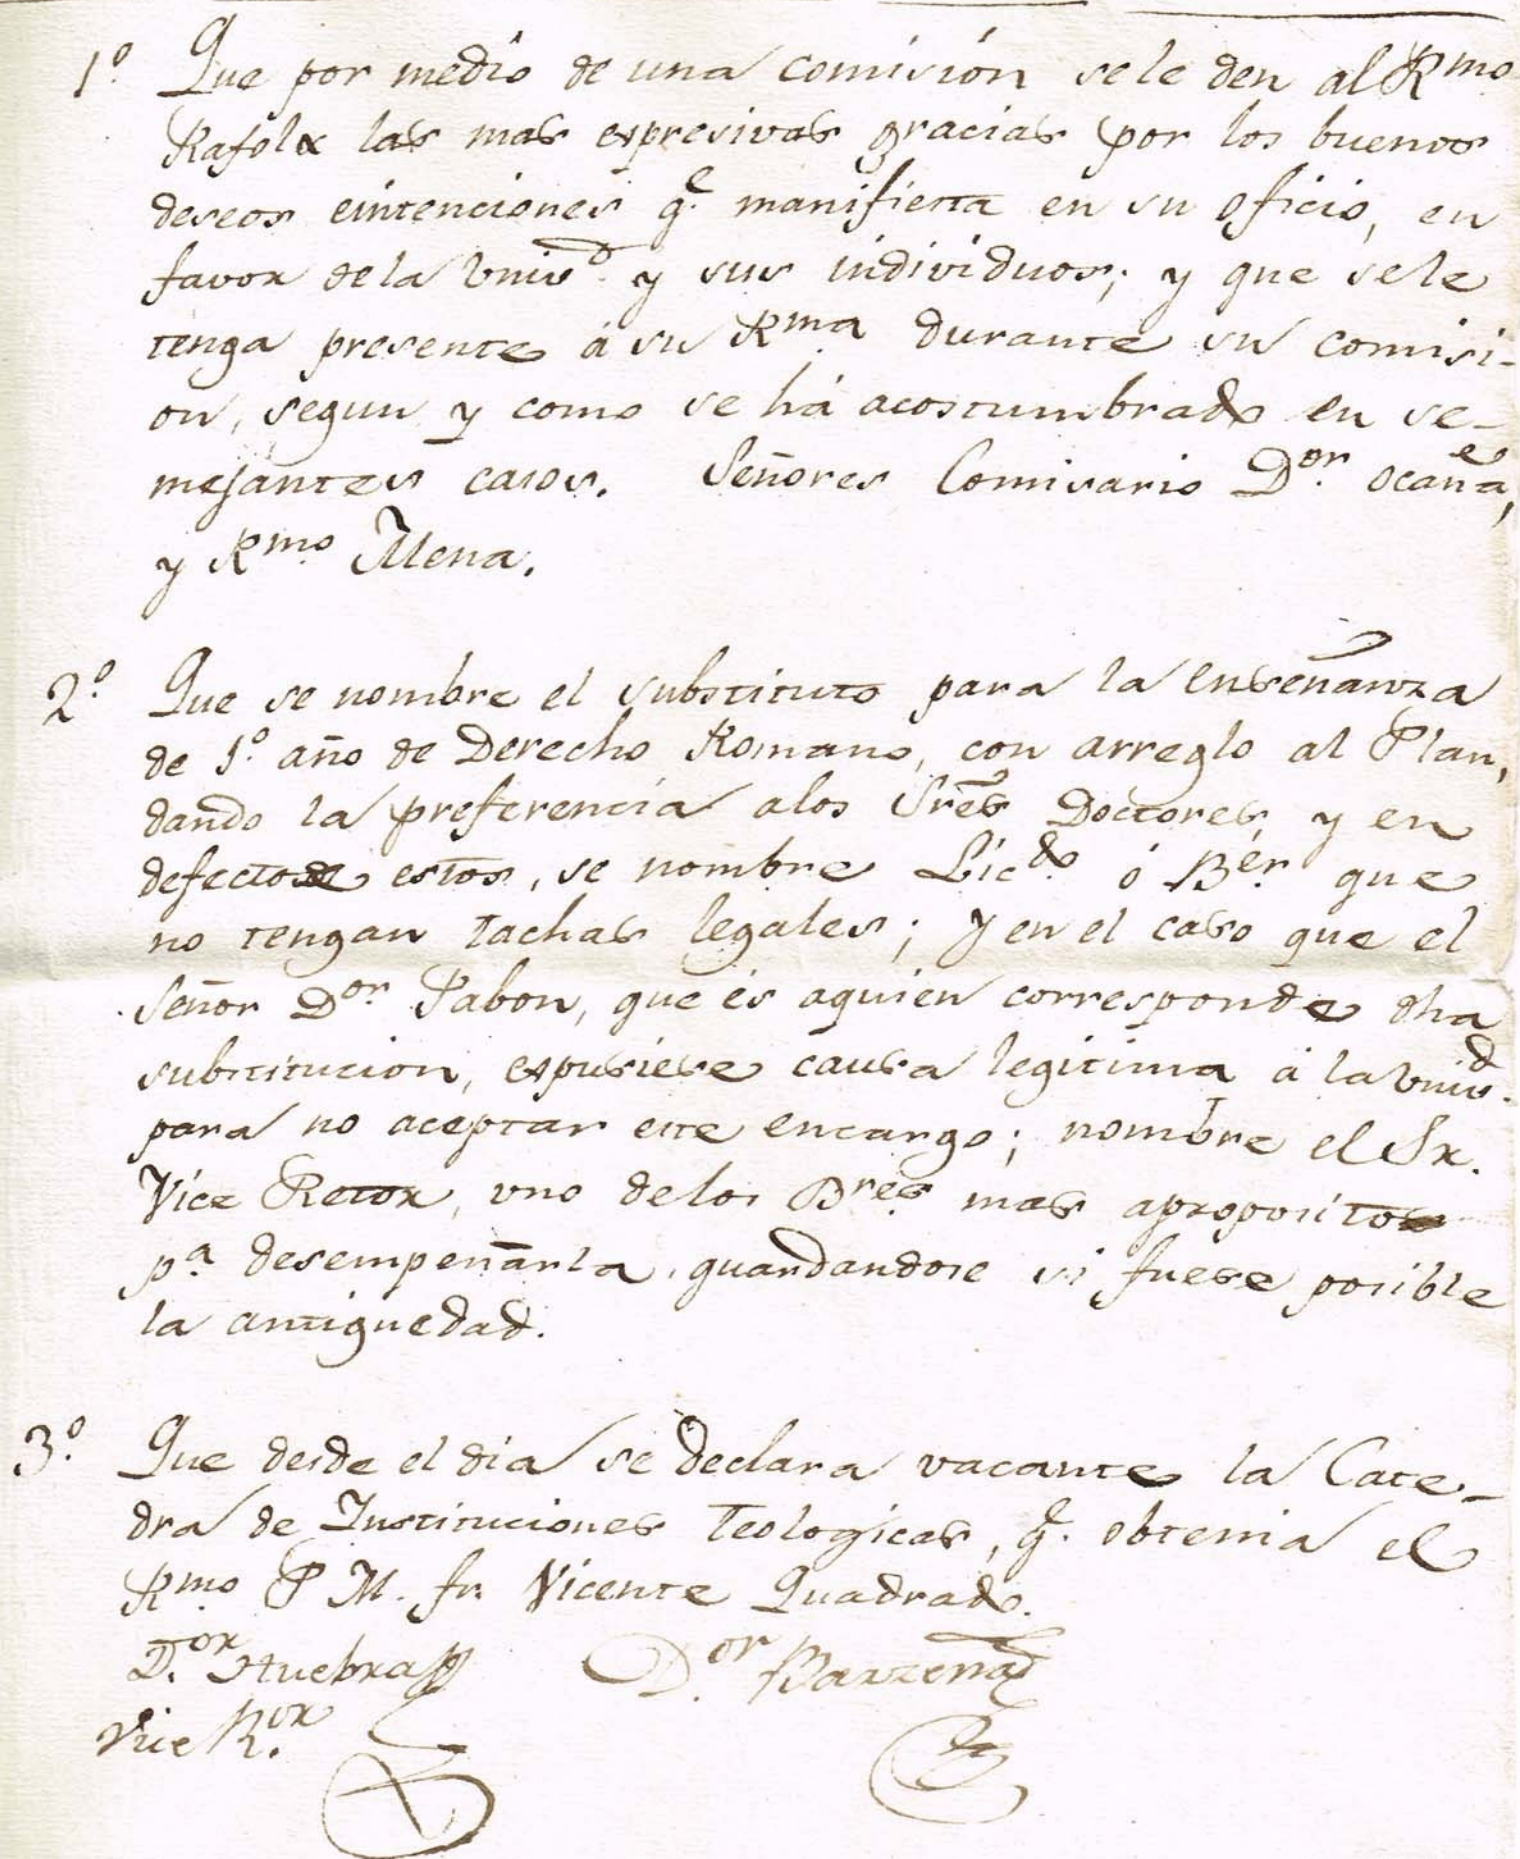 1º Que por medio de una comisión se le den al Rmo
Rafols las mas espresivas gracias por los buenos
deseos eintenciones q.e manifiesta en su oficio, en
favor dela Univ.d y sus individuos; y que sele
tenga presente á su Rma durante su comisi-
on, segun y como se há acostumbrado en se-
mejantes casos. Señores Comisario Dor. Ocaña,
y Rmo Mena.
2º Que se nombre el substituto para la enseñanza
de 1º año de Derecho Romano, con arreglo al Plan,
dando la preferencia alos Sres Doctores, y en
defecto de estos, se nombre Licdo. ó Bér. que
no tengan tachas legales; y en el caso que el
Señor Dor. Pabon, que és aquien corresponde dha
substitucion, espusiese causa legitima á la Univ.d
para no aceptar este encargo; nombre el Sr.
Vice Retor, uno delos Bres. mas aproposito
pa. desempeñarla, guardandose si fuese posible
la antiguedad.
3º Que desde el dia se declara vacante la Cate-
dra de Instituciones Teologicas, q.e obtenia el
Rmo P M. fr. Vicente Quadrado.
D.or Huebra D.or Barzena
Vice R.or